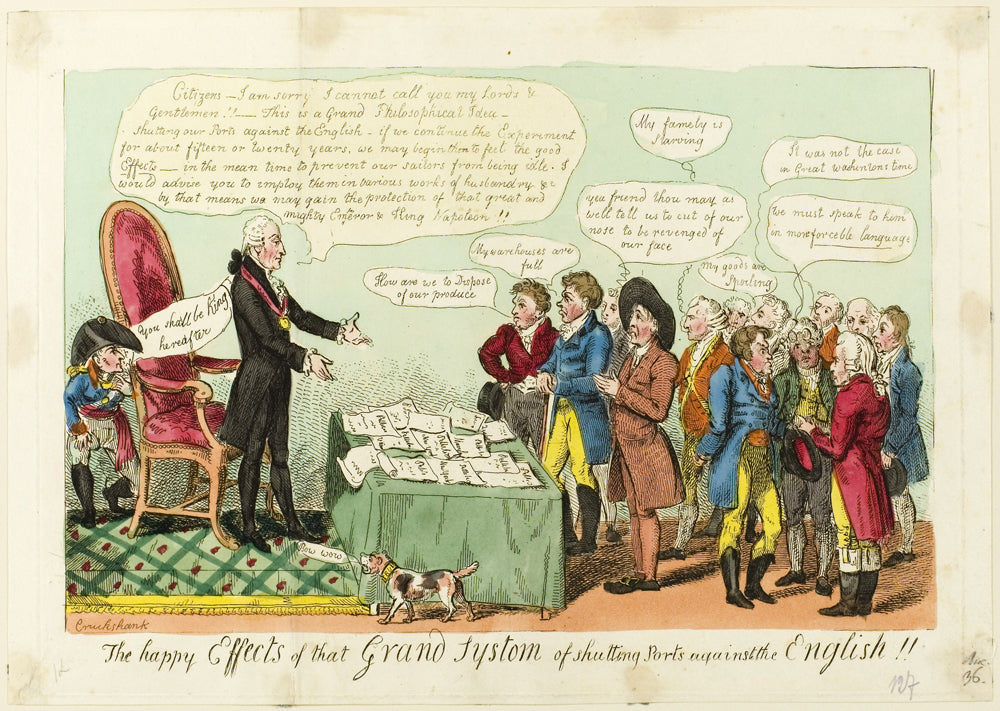 Citizens — I am sorry I cannot call you my Lords &
Gentlemen!! — This is a Grand Philosophical Idea —
shutting our Ports against the English - if we continue the Experiment
for about fifteen or twenty years, we may begin then to feel the good
Effects — in the mean time to prevent our sailors from being idle. I
would advise you to imploy them in various works of husbandry &c
by that means we may gain the protection of that great and
mighty Emperor & King Napoleon!!
You shall be King
hereafter
How are we to Dispose
of our produce
My warehouses are
full
My famely is
Starving
yea friend thou may as
well tell us to cut of our
nose to be revenged of
our face
my goods are
Spoiling
It was not the case
in Great washintons time
We must speak to him
in more forceble language
Bow wow
Cruikshank
The happy Effects of that Grand Systom of shutting Ports against the English!!
127
36.